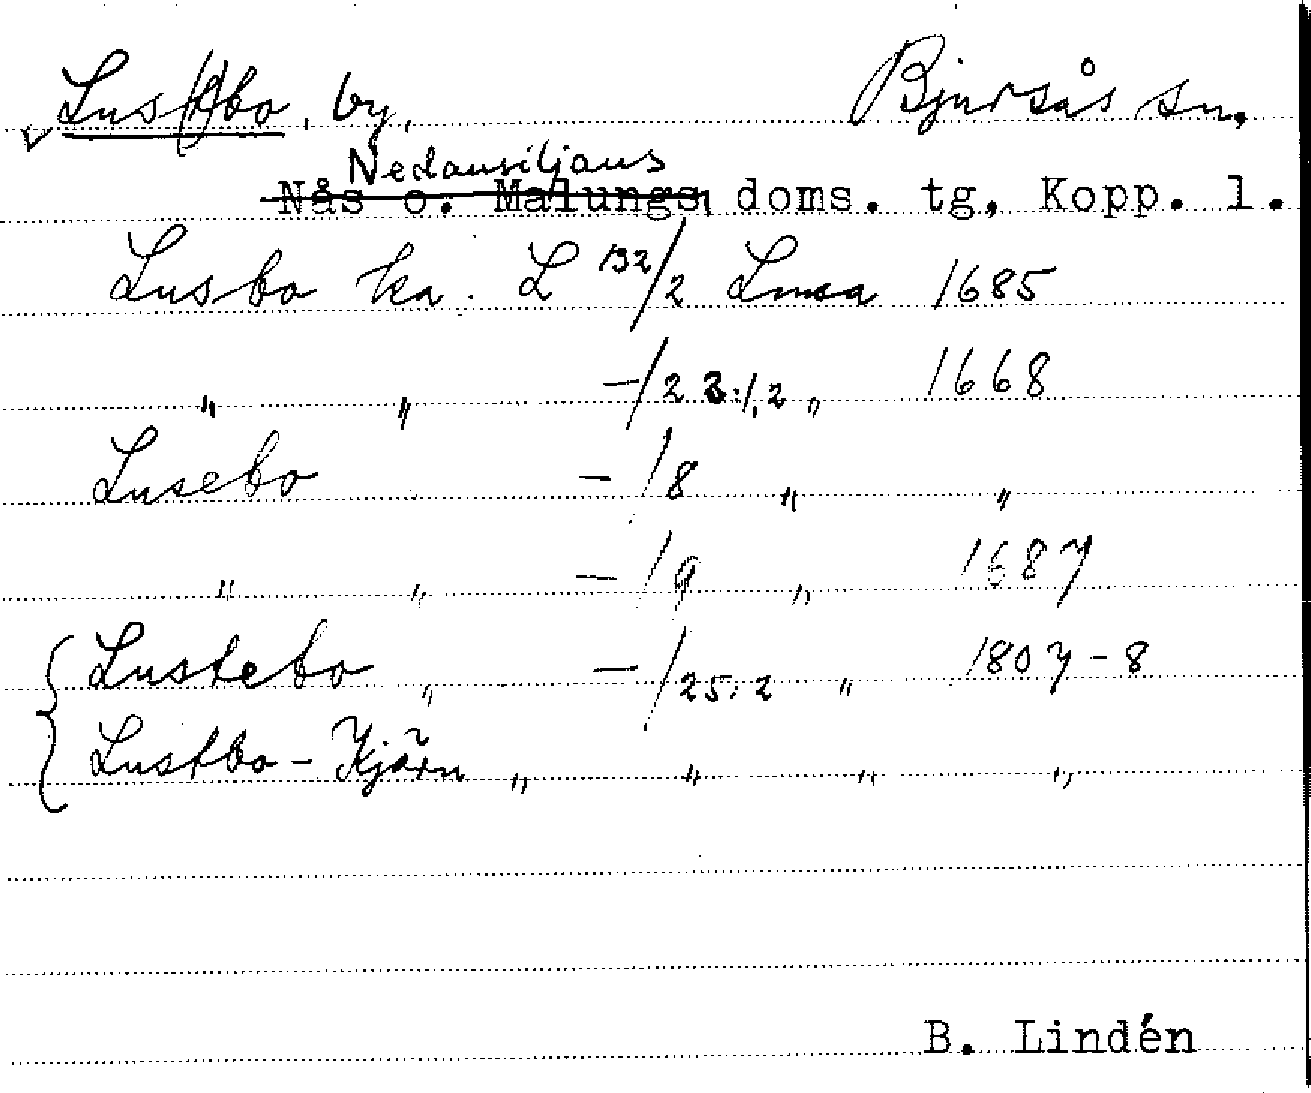 Lus(t)bo, by, Bjursås sn,
Nedansiljans
Nås o. Malungs doms. tg, Kopp. l.
Lusbo ka. L 132/2 Lmea 1685
" " –/2 3:1,2 " 1668
Lusebo – /8 " "
" " – /9 " 1687
Lustebo " – /25:2 " 1807-8
Lustbo-Kjärn " " " "
B. Lindén